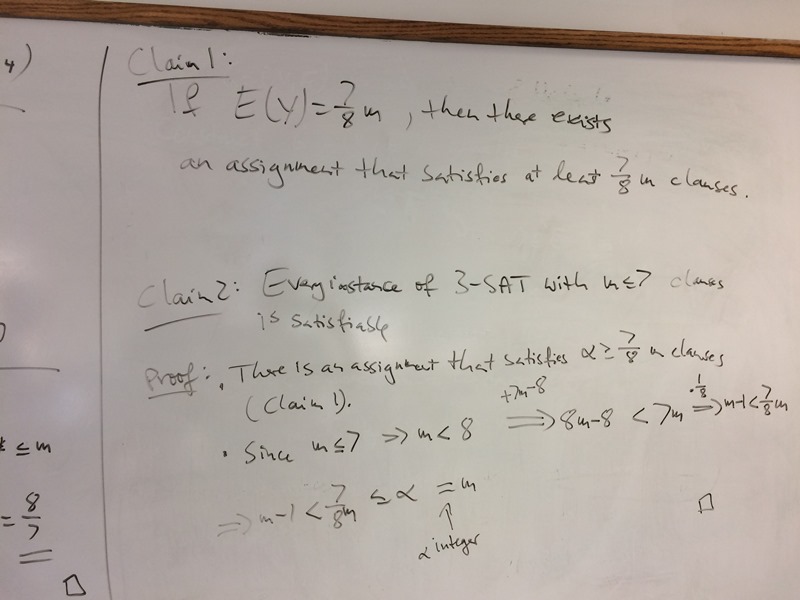 4)
Claim 1:
If E(Y) = 7/8 m, then there exists
an assignment that satisfies at least 7/8 m clauses.
Claim 2: Every instance of 3-SAT with m ≤ 7 clauses
is satisfiable
Proof: • There is an assignment that satisfies α ≥ 7/8 m clauses
(Claim 1).
• Since m ≤ 7 ⇒ m < 8 ⇒ (+7m-8) 8m-8 < 7m ⇒ (·1/8) m-1 < 7/8 m
⇒ m-1 < 7/8 m ≤ α = m
↑
α integer
□
≤ m
= 8/7
□